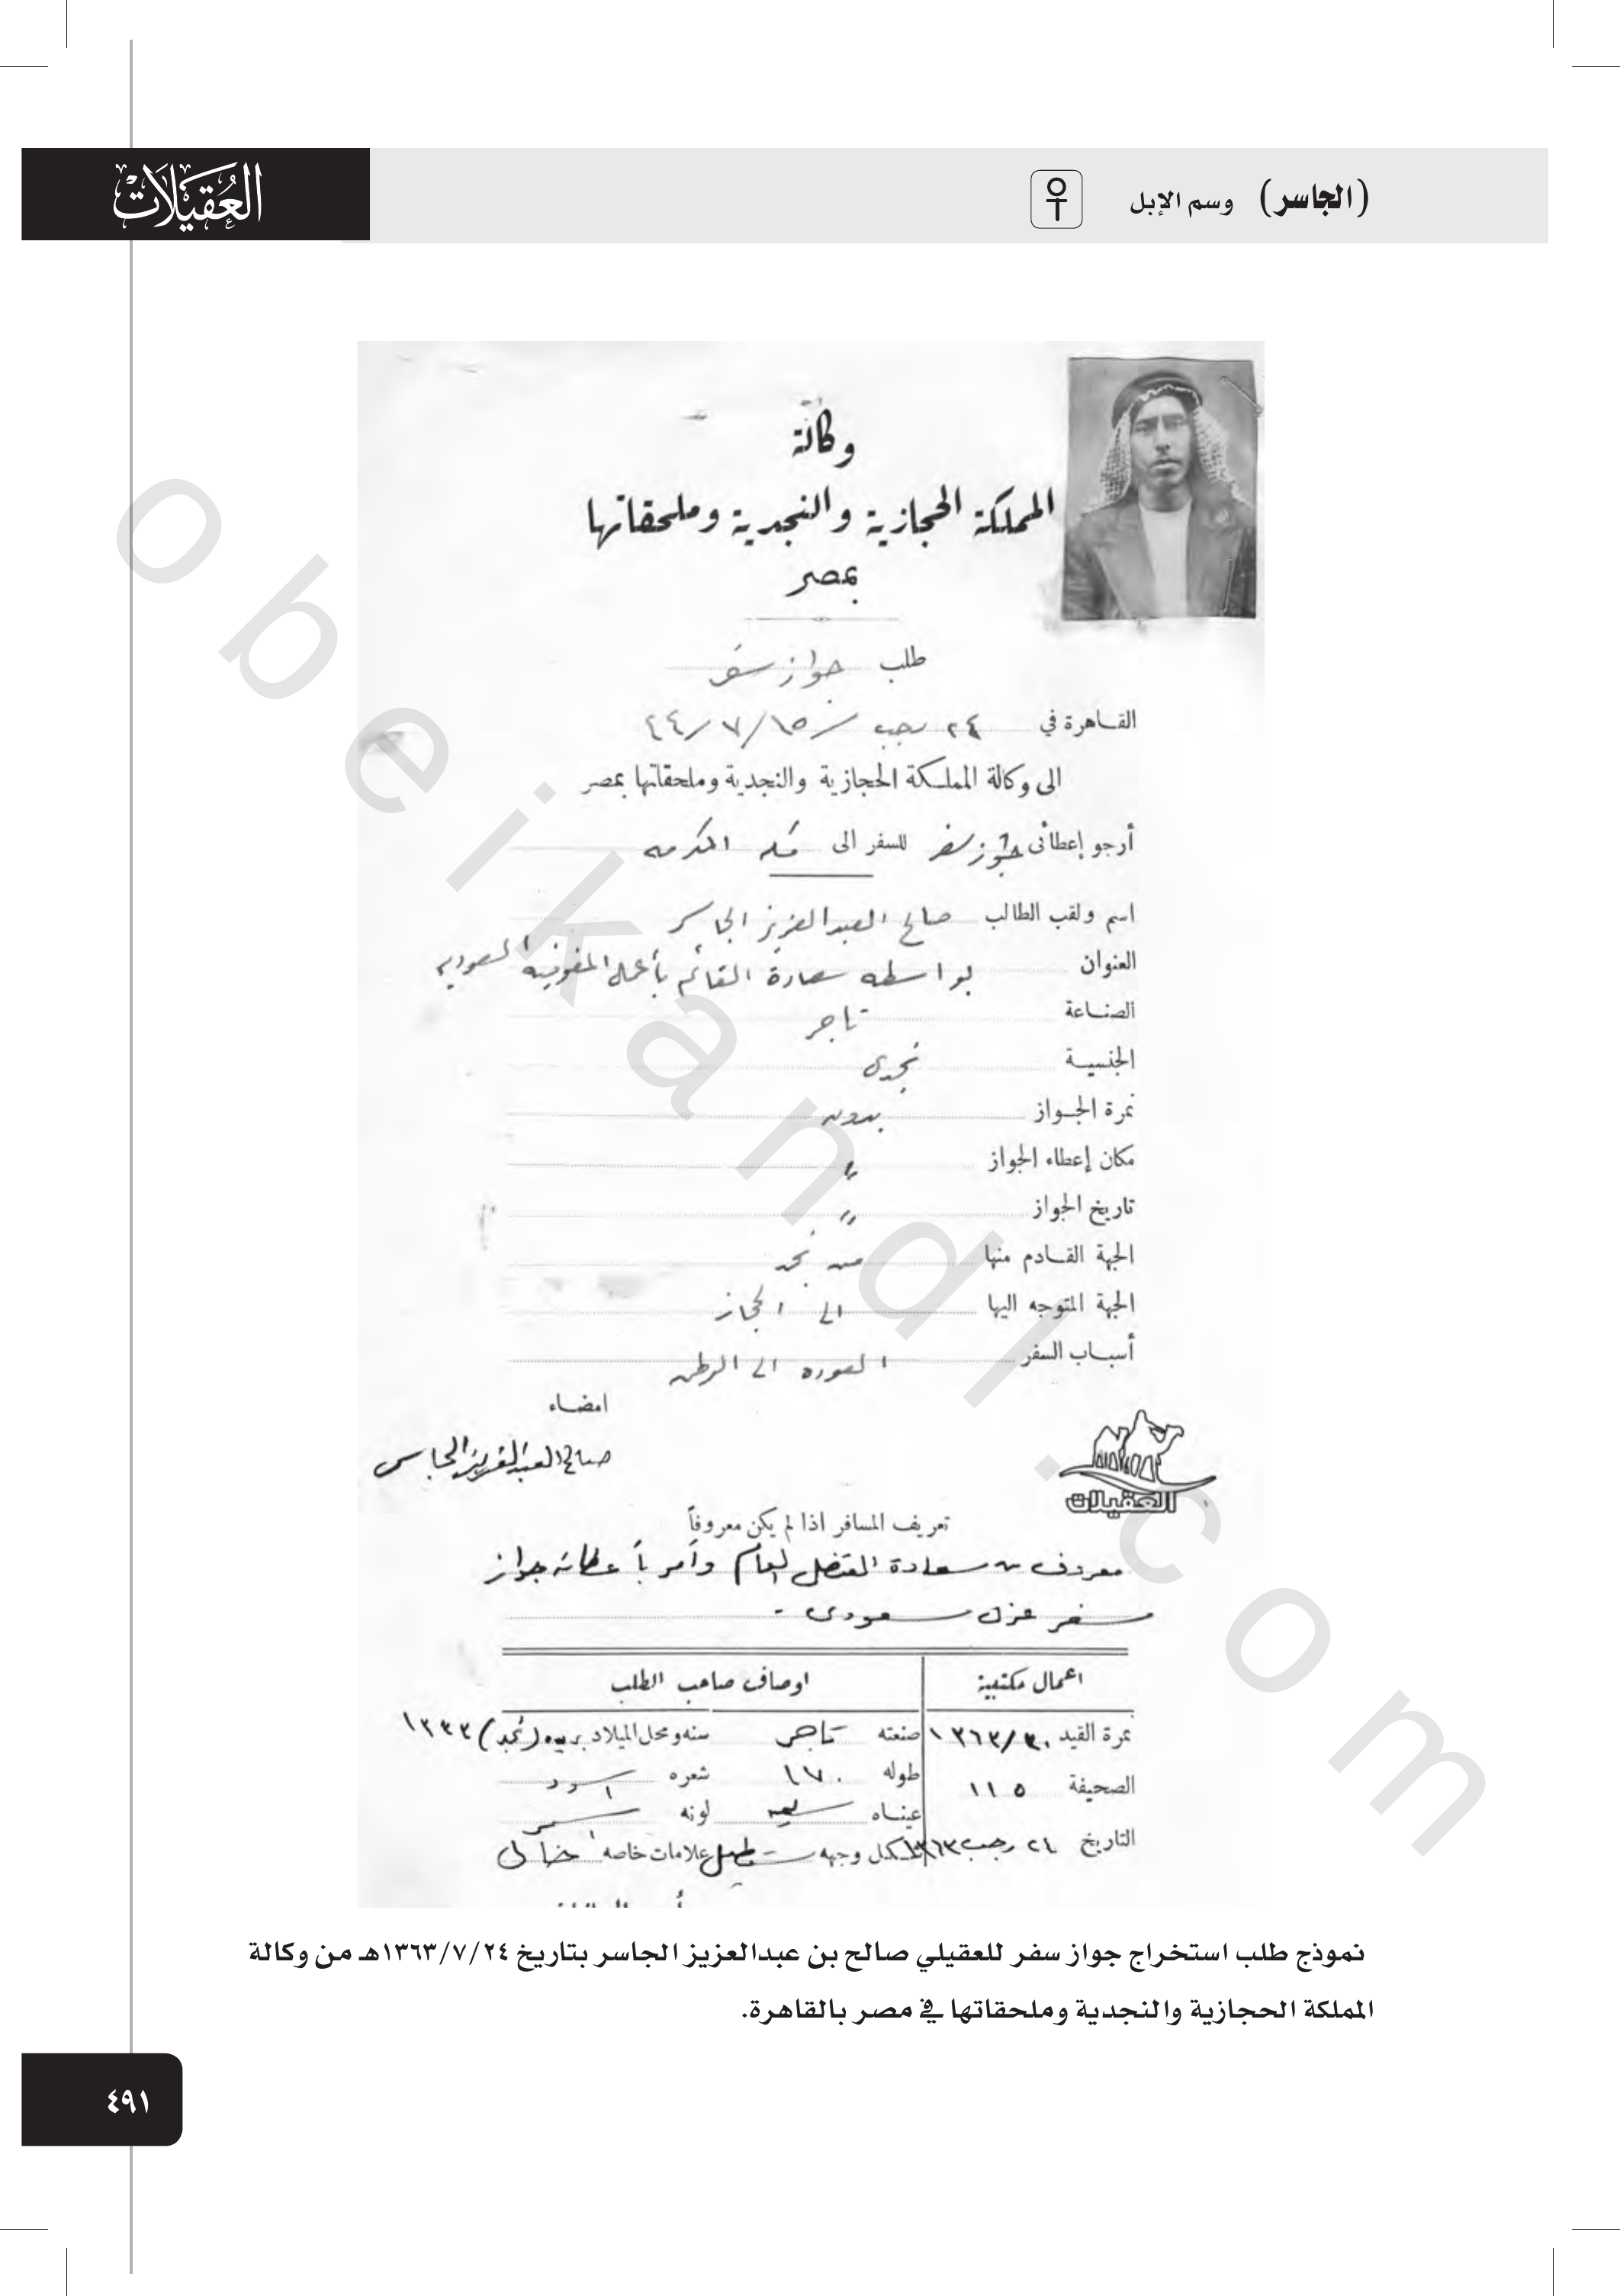 العقيلات
(الجاسر) وسم الإبل
وكالة
المملكة الحجازية والنجدية وملحقاتها
بمصر
طلب جواز سفر
القاهرة في ٢٤ رجب / ١٥/٧/٤٤
الى وكالة المملكة الحجازية والنجدية وملحقاتها بمصر
أرجو إعطائى جواز سفر للسفر الى مكه المكرمه
اسم ولقب الطالب صالح العبد العزيز الجاسر
العنوان بواسطه سعادة القائم بأعمال المفوضيه السعوديه
الصناعة تاجر
الجنسية نجدى
نمرة الجواز بدون
مكان إعطاء الجواز 〃
تاريخ الجواز 〃
الجهة القادم منها من نجد
الجهة المتوجه اليها الى الحجاز
أسباب السفر العوده الى الوطن
امضاء
صالح العبد العزيز الجاسر
العقيلات
تعريف المسافر اذا لم يكن معروفاً
معروف من سعادة القنصل العام وأمر بأعطائه جواز
سفر سعودى -
اعمال مكتبية اوصاف صاحب الطلب
نمرة القيد ١٣٦٣/٣٠ صنعته تاجر سنه ومحل الميلاد بريده (نجد) ١٣٣٣
الصحيفة ١١٥ طوله ١٧٠ شعره اسود
عيناه لونه اسمر
التاريخ ٢٤ رجب ١٣٦٣ شكل وجهه مستطيل علامات خاصه خالى
نموذج طلب استخراج جواز سفر للعقيلي صالح بن عبدالعزيز الجاسر بتاريخ ١٣٦٣/٧/٢٤هـ من وكالة
المملكة الحجازية والنجدية وملحقاتها في مصر بالقاهرة.
٤٩١
obeikandl.com